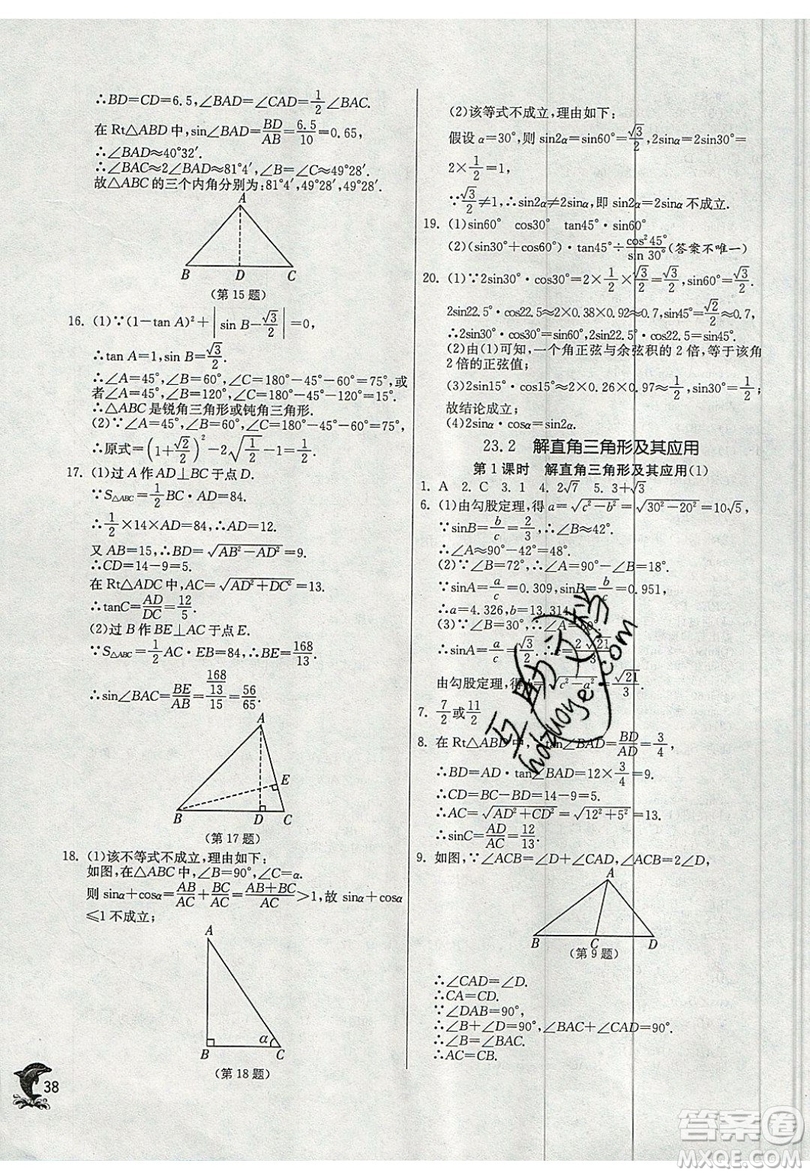 ∴BD=CD=6.5,∠BAD=∠CAD=1/2∠BAC.
在 Rt△ABD 中,sin∠BAD=BD/AB=6.5/10=0.65,
∴∠BAD≈40°32′.
∴∠BAC≈2∠BAD≈81°4′.
故△ABC 的三个内角分别为:81°4′,49°28′,49°28′.
A
B D C
(第 15 题)
16. (1)∵(1-tan A)²+|sin B-√3/2|=0,
∴tan A=1,sin B=√3/2.
∴∠A=45°,∠B=60°,∠C=180°-45°-60°=75°,或
者∠A=45°,∠B=120°,∠C=180°-45°-120°=15°.
∴△ABC 是锐角三角形或钝角三角形.
(2)∵∠A=45°,∠B=60°,∠C=180°-45°-60°=75°,
∴原式=(1+√2/2)²-2√(1+1/2)-1=1/2.
17. (1)过 A 作 AD⊥BC 于点 D.
∵S△ABC=1/2BC·AD=84,
∴1/2×14×AD=84,∴AD=12.
又 AB=15,∴BD=√(AB²-AD²)=9.
∴CD=14-9=5.
在 Rt△ADC 中,AC=√(AD²+DC²)=13.
∴tanC=AD/DC=12/5.
(2)过 B 作 BE⊥AC 于点 E.
∵S△ABC=1/2AC·EB=84,∴BE=168/13.
∴sin∠BAC=BE/BA=(168/13)/15=56/65.
A
E
B D C
(第 17 题)
18. (1)该不等式不成立,理由如下:
如图,在△ABC 中,∠B=90°,∠C=α.
则 sinα+cosα=AB/AC+BC/AC=(AB+BC)/AC>1,故 sinα+cosα
≤1 不成立;
A
B α C
(第 18 题)
38
(2)该等式不成立,理由如下:
假设 α=30°,则 sin2α=sin60°=√3/2,2sinα=2sin30°=
2×1/2=1,
∵√3/2≠1,∴sin2α≠2sinα,即 sin2α=2sinα 不成立.
19. (1)sin60° cos30° tan45°·sin60°
(2)(sin30°+cos60°)·tan45°÷cos²45°/sin 30°(答案不唯一)
20. (1)∵2sin30°·cos30°=2×1/2×√3/2=√3/2,sin60°=√3/2.
2sin22.5°·cos22.5≈2×0.38×0.92≈0.7,sin45°=√2/2≈0.7,
∴2sin30°·cos30°=sin60°,2sin22.5°·cos22.5=sin45°.
(2)由(1)可知,一个角正弦与余弦积的 2 倍,等于该角
2 倍的正弦值;
(3)2sin15°·cos15°≈2×0.26×0.97≈1/2,sin30°=1/2;
故结论成立;
(4)2sinα·cosα=sin2α.
23.2 解直角三角形及其应用
第 1 课时 解直角三角形及其应用(1)
1. A 2. C 3. 1 4. 2√7 5. 3+√3
6. (1)由勾股定理,得 a=√(c²-b²)=√(30²-20²)=10√5,
∵sinB=b/c=2/3,∴∠B≈42°.
∴∠A≈90°-42°=48°.
(2)∵∠B=72°,∴∠A=90°-∠B=18°.
∵sinA=a/c=0.309,sinB=b/c=0.951,
∴a=4.326,b=13.314.
(3)∵∠B=30°,∴∠A=60°.
7. 7/2或11/2
8. 在 Rt△ABD 中,tan∠BAD=BD/AD=3/4,
∴BD=AD·tan∠BAD=12×3/4=9.
∴CD=BC-BD=14-9=5.
∴AC=√(AD²+CD²)=√(12²+5²)=13.
∴sinC=AD/AC=12/13.
9. 如图,∵∠ACB=∠D+∠CAD,∠ACB=2∠D,
A
B C D
(第 9 题)
∴∠CAD=∠D.
∴CA=CD.
∵∠DAB=90°,
∴∠B+∠D=90°,∠BAC+∠CAD=90°.
∴∠B=∠BAC.
∴AC=CB.
互助文档
hdzuoye.com
答案圈
MXQE.COM